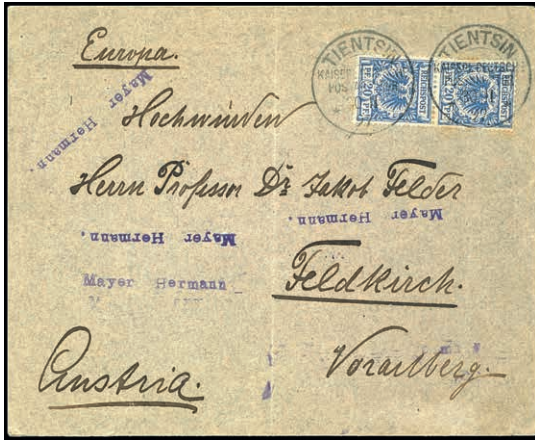 Europa.
TIENTSIN
TIENTSIN
20 PF. REICHSPOST 20 PF.
REICHSPOST 20 PF.
Mayer Hermann.
Hochwürden
Herrn Professor Dr Jakob Felder
Mayer Hermann.
Mayer Hermann.
Mayer Hermann
Feldkirch.
Vorarlberg.
Austria.